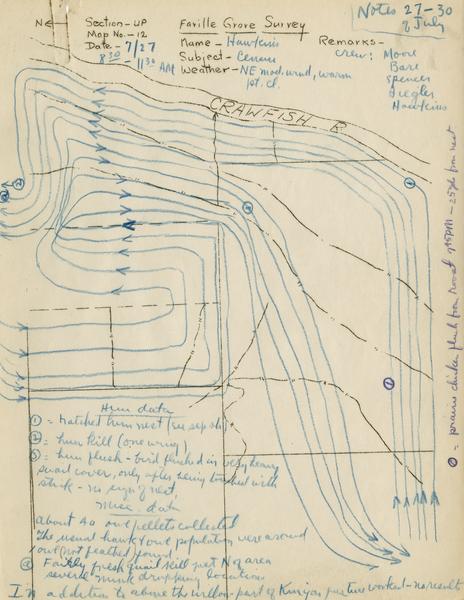 Notes 27-30
8 July
NE← Section-UP
Map No.-12
Date- 7/27
8:30 - 11:30 AM
Faville Grove Survey
Name - Hawkins
Subject - Census
Weather - NE mod. wind, warm
pt. cl.
Remarks-
Crew: Moore
Barr
Spencer
Ziegler
Hawkins
CRAWFISH R.
prairie chicken flush from roost
25 yds from nest
Hun data
① = hatched hun nest (see sep. sh)
② = hun kill (one wing)
③ = hun flush - bird flushed in very heavy
sweet cover, only after being touched with
stick - no sign of nest.
Misc. data
About 40 owl pellets collected
The usual hawk & owl population were around
owl not feathered found
④ Fairly fresh quail kill just N of area
several mink droppings located
In addition to above the willow part of Kinyon pasture worked - no results